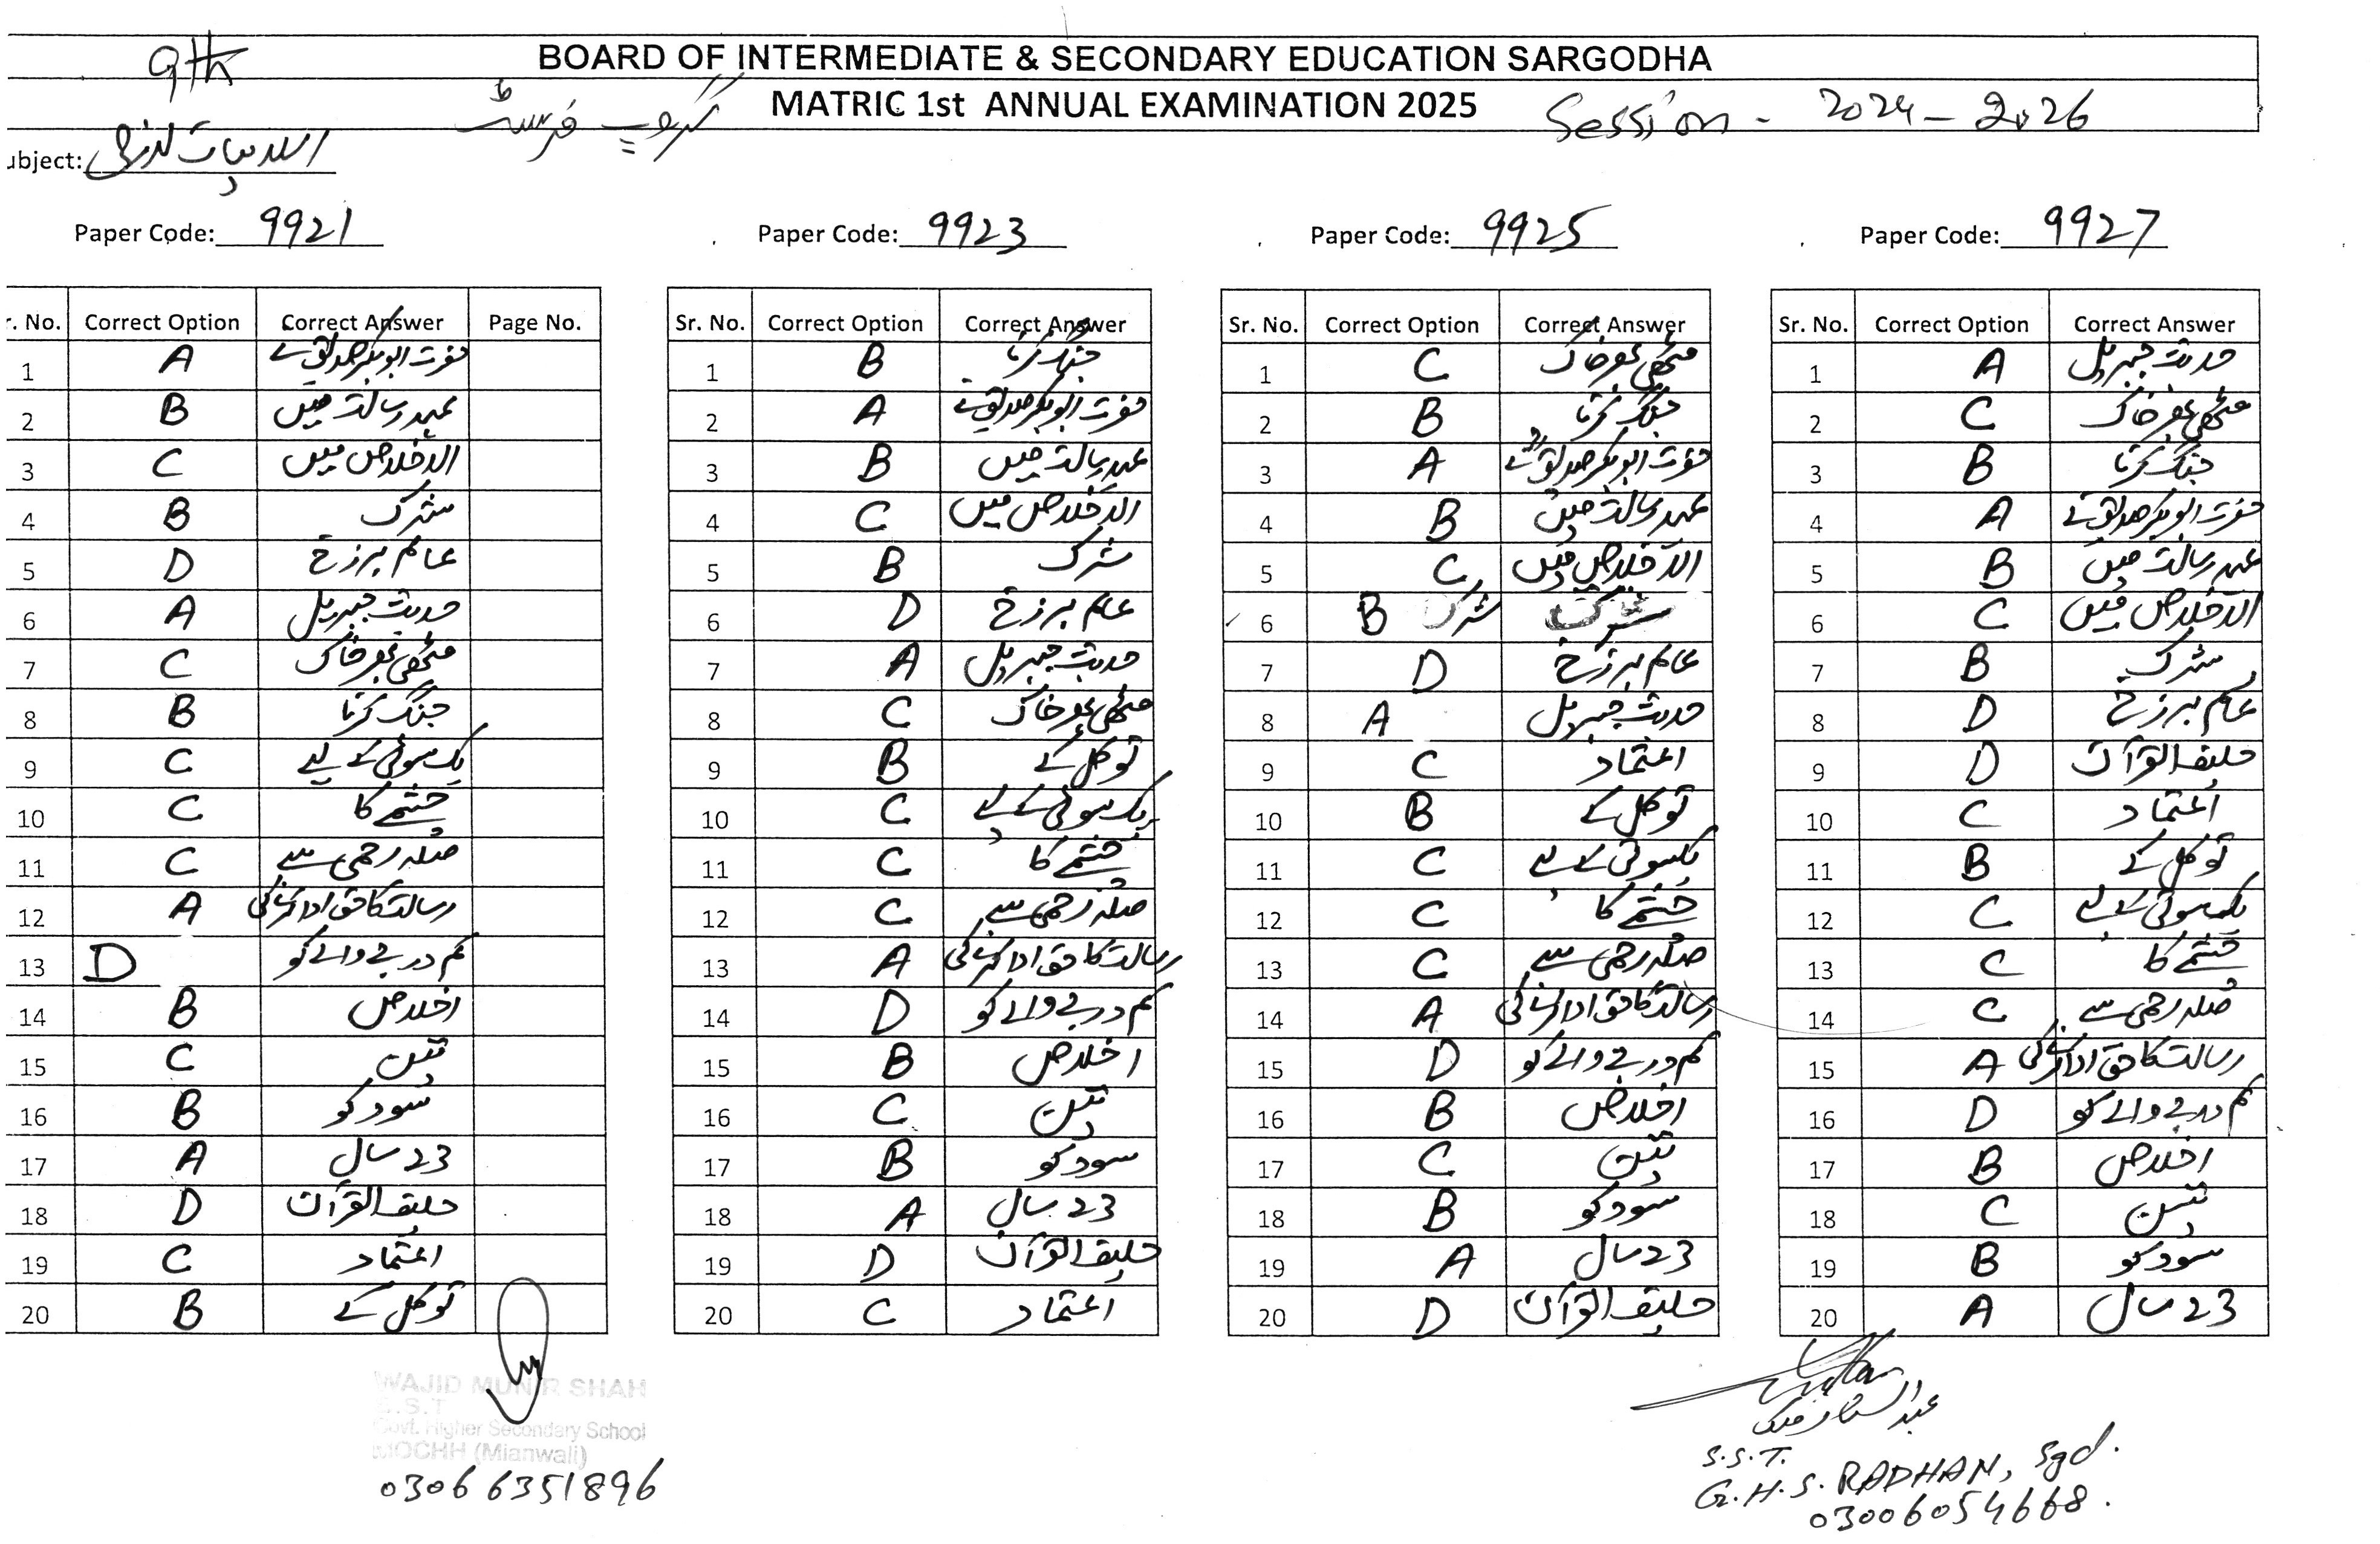 BOARD OF INTERMEDIATE & SECONDARY EDUCATION SARGODHA
9th
MATRIC 1st ANNUAL EXAMINATION 2025
گروپ فرسٹ
Session - 2024 - 2026
ubject: اسلامیات لازمی
Paper Code: 9921
Paper Code: 9923
Paper Code: 9925
Paper Code: 9927
r. No. Correct Option Correct Answer Page No.
1 A حضرت ابوبکر صدیق نے
2 B عہد رسالت میں
3 C الاخلاص میں
4 B شرک
5 D عالم برزخ
6 A حدیث جبریل
7 C مٹھی بھر خاک
8 B جنگ کرنا
9 C یک سوئی کے لیے
10 C چشمے کا
11 C صلہ رحمی سے
12 A رسالت کا حق ادا کرنے کی
13 D کم درجے والے کو
14 B اخلاص
15 C تین
16 B سود کو
17 A 23 سال
18 D حلیف القرآن
19 C اعتماد
20 B توکل کے
Sr. No. Correct Option Correct Answer
1 B جنگ کرنا
2 A حضرت ابوبکر صدیق نے
3 B عہد رسالت میں
4 C الاخلاص میں
5 B شرک
6 D عالم برزخ
7 A حدیث جبریل
8 C مٹھی بھر خاک
9 B توکل کے
10 C یک سوئی کے لیے
11 C چشمے کا
12 C صلہ رحمی سے
13 A رسالت کا حق ادا کرنے کی
14 D کم درجے والے کو
15 B اخلاص
16 C تین
17 B سود کو
18 A 23 سال
19 D حلیف القرآن
20 C اعتماد
Sr. No. Correct Option Correct Answer
1 C مٹھی بھر خاک
2 B جنگ کرنا
3 A حضرت ابوبکر صدیق نے
4 B عہد رسالت میں
5 C الاخلاص میں
6 B شرک شرک
7 D عالم برزخ
8 A حدیث جبریل
9 C اعتماد
10 B توکل کے
11 C یکسوئی کے لیے
12 C چشمے کا
13 C صلہ رحمی سے
14 A رسالت کا حق ادا کرنے کی
15 D کم درجے والے کو
16 B اخلاص
17 C تین
18 B سود کو
19 A 23 سال
20 D حلیف القرآن
Sr. No. Correct Option Correct Answer
1 A حدیث جبریل
2 C مٹھی بھر خاک
3 B جنگ کرنا
4 A حضرت ابوبکر صدیق نے
5 B عہد رسالت میں
6 C الاخلاص میں
7 B شرک
8 D عالم برزخ
9 D حلیف القرآن
10 C اعتماد
11 B توکل کے
12 C یک سوئی کے لیے
13 C چشمے کا
14 C صلہ رحمی سے
15 A رسالت کا حق ادا کرنے کی
16 D کم درجے والے کو
17 B اخلاص
18 C تین
19 B سود کو
20 A 23 سال
WAJID MUNIR SHAH
S.S.T
Govt. Higher Secondary School
MOCHH (Mianwali)
03066351896
عبدالستار ملک
S.S.T.
G.H.S. RADHAN, Sgd.
03006054668.